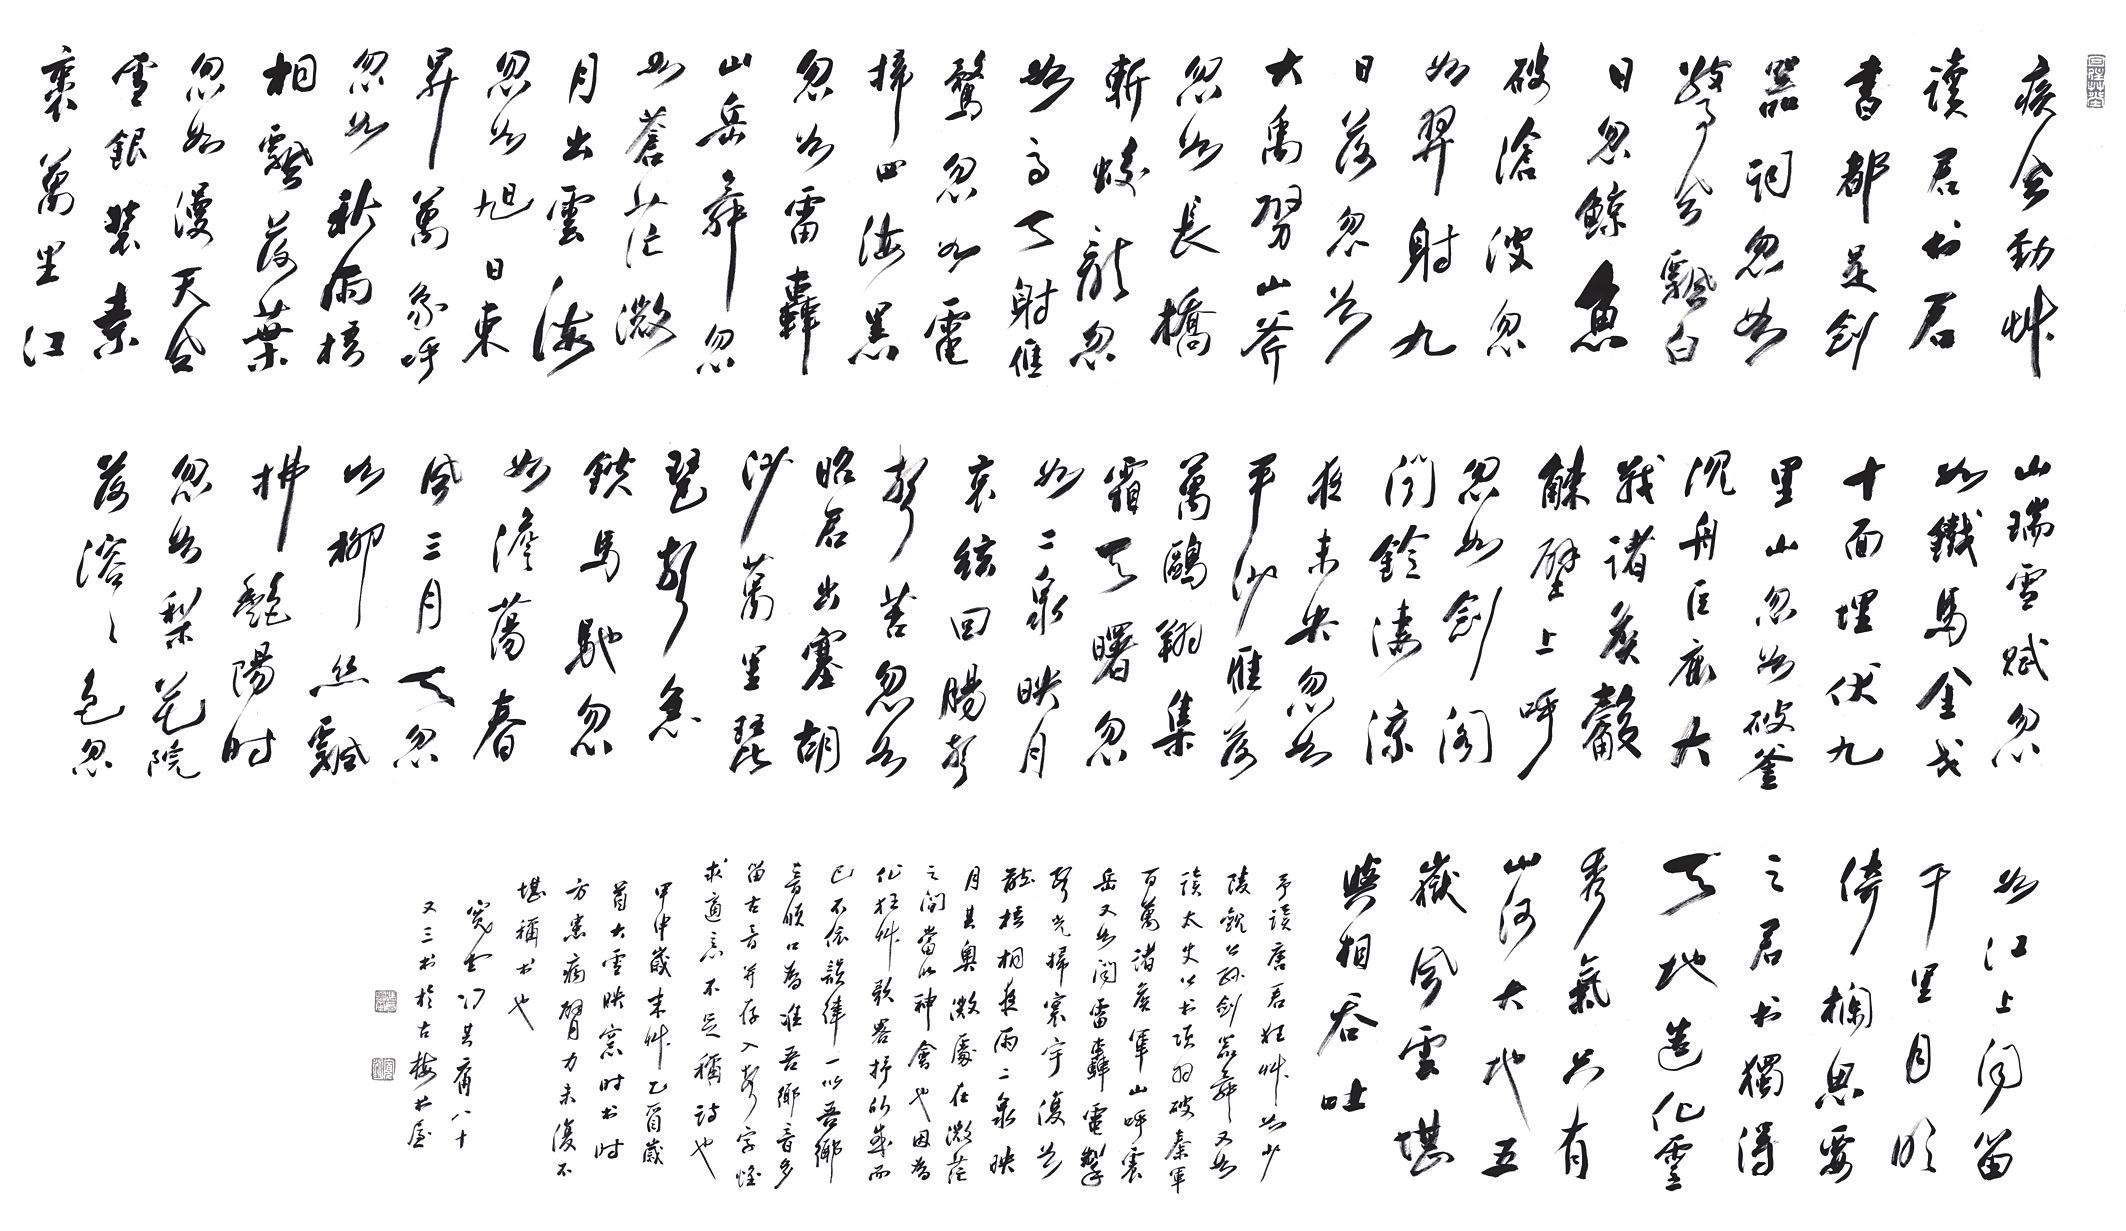 疾令勁艸
讀君书君
書都是劍
器詞忽如
驚風飄白
日忽鯨魚
破滄波忽
如羿射九
日落忽如
大禹劈山斧
忽如長橋
斬蛟龍忽
如高天射雕
鶩忽如電
掃四海黑
忽如雷轟
山岳舞忽
如蒼茫微
月出雲海
忽如旭日東
昇萬象呼
忽如秋雨梧
桐飄落葉
忽如漫天風
雪銀裝素
裹萬里江
山瑞雪賦忽
如鐵馬金戈
十面埋伏九
里山忽如破釜
沉舟巨鹿大
戰諸矦觳
觫壁上呼
忽如劍閣
聞鈴淒涼
夜未央忽如
平沙雁落
萬鷗翔集
霜天曙忽
如二泉映月
哀絃回腸聲
聲苦忽如
昭君出塞胡
沙萬里琵
琶聲急
鉄馬馳忽
如澹蕩春
風三月天忽
如柳丝飄
拂艷陽时
忽如梨花院
落溶〻色忽
如江上闻笛
千里月明
倚欄思要
之君书獨得
天地造化靈
秀氣只有
山河大地五
嶽風雲堪
與相吞吐
予讀唐君狂艸如少
陵觀公孙劍器舞又如
读太史公书项羽破秦軍
百萬諸矦軍山呼震
岳又如闻雷轟電掣
聲光掃寰宇復如
聽梧桐夜雨二泉映
月其奥微處在微茫
之間當以神會也因為
作狂艸歌畧抒所感而
已不依韻律一以吾鄉
音順口為准吾鄉音多
留古音并存入聲字惟
求適意不足稱詩也
甲申歲末艸乙酉歲
首大雪映窗时书时
方患病臂力未復不
堪稱书也
寬堂冯其庸八十
又三书於古梅书屋